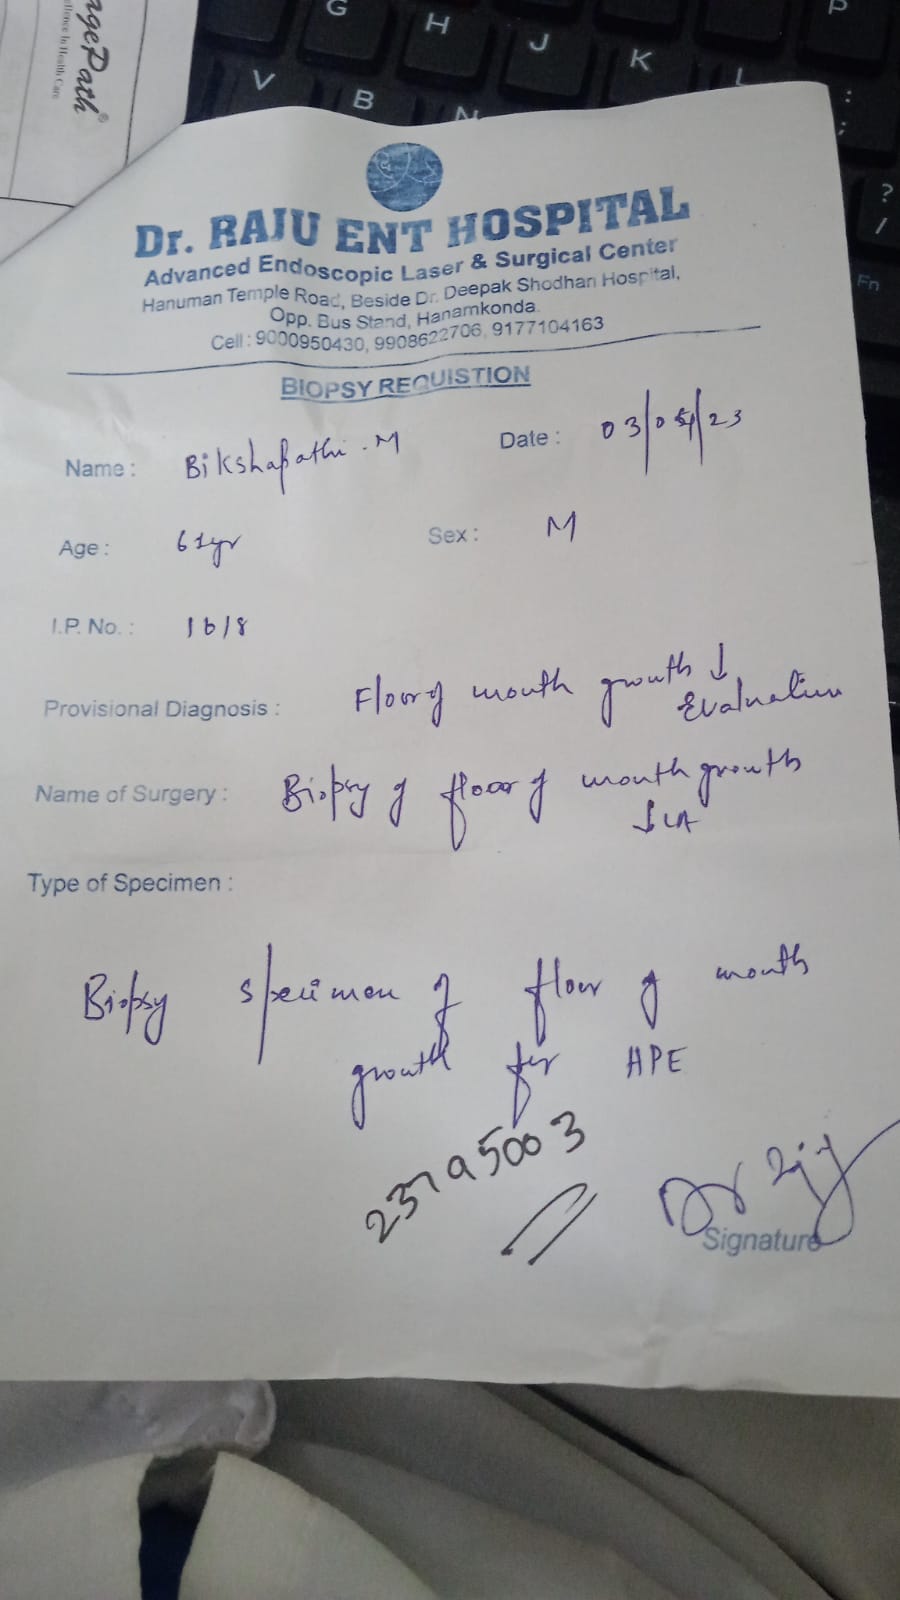 ngePath®
ellence In Health Care
G H J K L P
V B N : ;
? /
Fn
Dr. RAJU ENT HOSPITAL
Advanced Endoscopic Laser & Surgical Center
Hanuman Temple Road, Beside Dr. Deepak Shodhan Hospital,
Opp. Bus Stand, Hanamkonda.
Cell : 9000950430, 9908622706, 9177104163
BIOPSY REQUISTION
Name : Bikshapathi . M Date : 03/05/23
Age : 61yr Sex : M
I.P. No. : 1618
Provisional Diagnosis : Floor of mouth growth ↓
Evaluation
Name of Surgery : Biopsy of floor of mouth growth
↓ LA
Type of Specimen :
Biopsy specimen of floor of mouth
growth for HPE
23795003
Dr
Signature